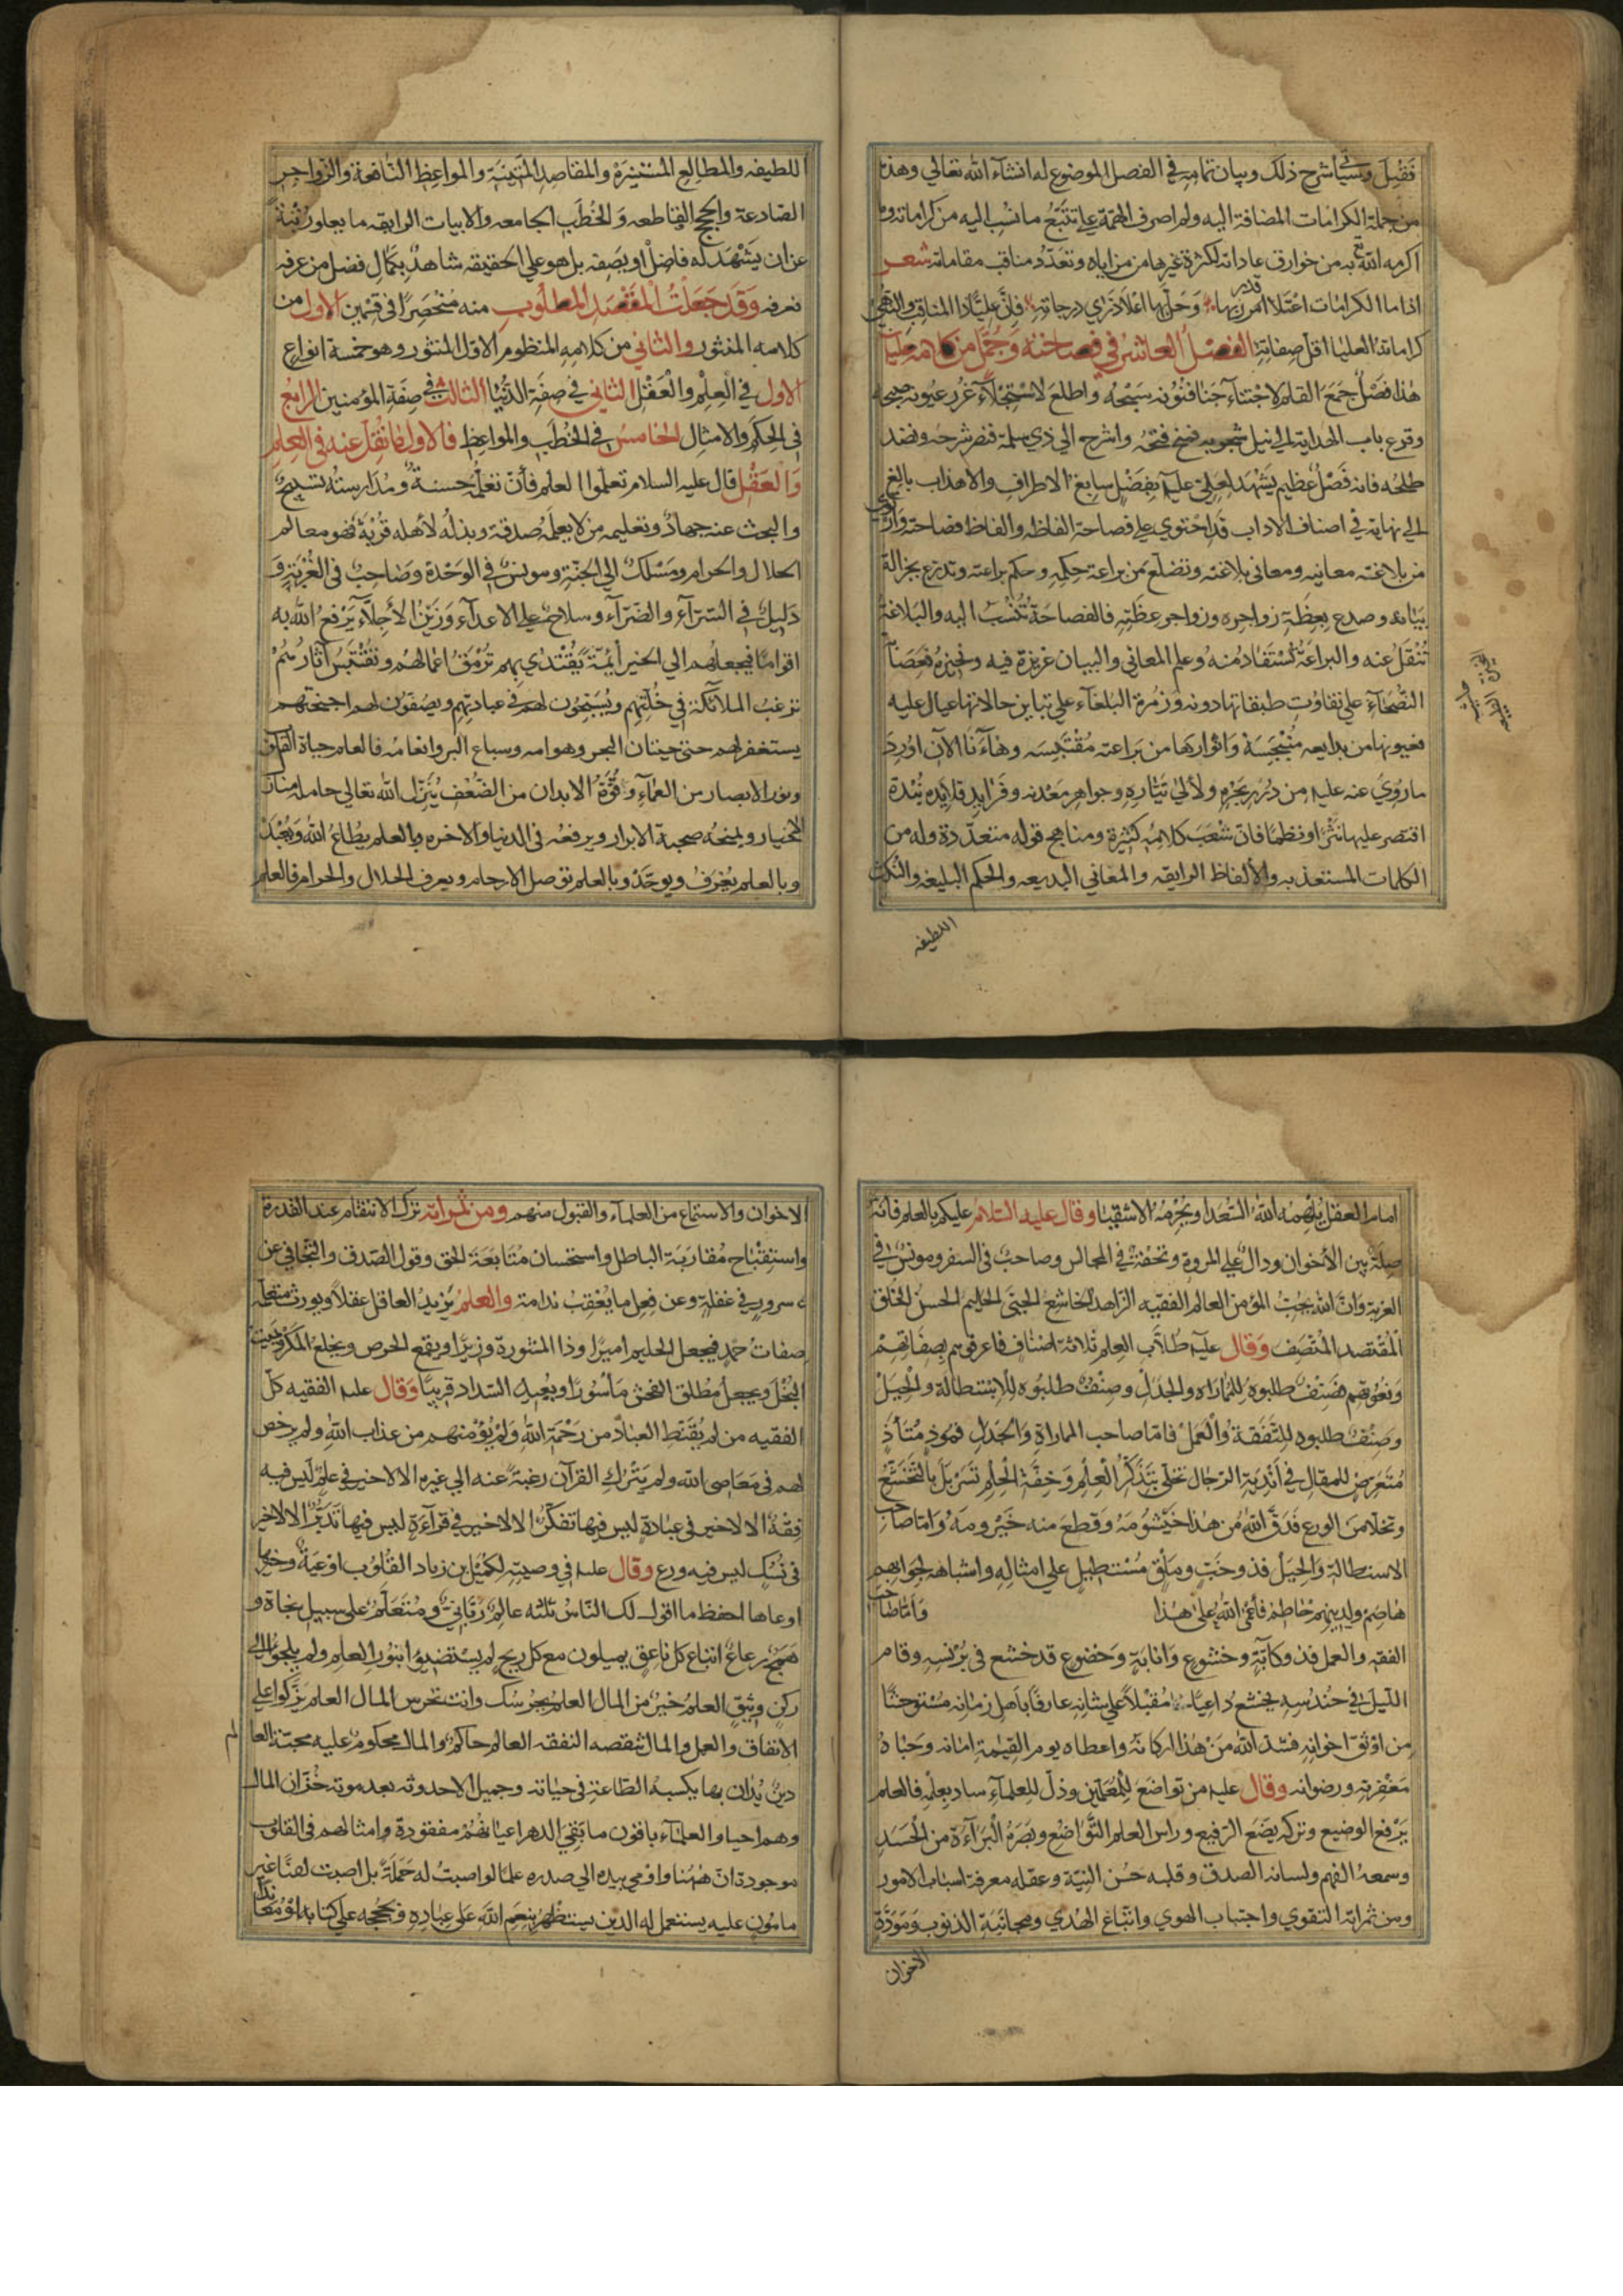 فقيل وسيأتي شرح ذلك وبيان تمامه في الفصل الموضوع له انشآء الله تعالي وهذه
من جملة الكرامات المضافة اليه ولم اصرف الهمة علي تتبع ما نسب اليه من كراماته وما
اكرمه الله تع به من خوارق عاداته لكثرة غيرها من مزاياه وتعدد مناقب مقاماته شعر
اذا ما الكرامات اعتلا قدر ربها وحل بها اعلا ذري درجاته فان عليا ذا المناقب والنهي
كراماته العليا اقل صفاته الفصل العاشر في فصاحته وجمل من كلامه عليه
هذا فصل جمع القلم لاجتناء جنا فنونه واطلع لاستجلاء غرر عيونه
وقرع باب الهداية الي نيل واشرح الي ذي سلمة فنضر شرحه ونضد
طلحه فانه فصل عظيم يشهد لعلي عليه بفضل سابغ الاطراف والاهداب بالغ
الي نهاية في اصناف الاداب قد احتوي علي فصاحة الفاظه والفاظ فصاحته
من بلاغته معانيه ومعاني بلاغته وتضلع من براعة حكمه وحكم براعته وتدرع بجزالة
بيانه وصدع بعظة زواجره وزواجر عظته فالفصاحة تنسب اليه والبلاغة
تنقل عنه والبراعة تستفاد منه وعلم المعاني والبيان غريزة فيه
الفصحاء علي تفاوت طبقاتها دونه وزمرة البلغاء علي تباين حالاتها عيال عليه
فعيونها من بدايعه منبجسة وانوارها من براعته مقتبسه وها انا الان اورد
ما روي عنه عليه من درر بحره ولألي تياره وجواهر معدنه وفرايد قلايده نبذة
اقتصر عليها نثرا ونظما فان شعب كلامه كثيرة ومناهج قوله متعددة وله من
الكلمات المستعذبه والألفاظ الرايقه والمعاني البديعه والحكم البليغه والنكت
اللطيفه
اللطيفه والمطالع المستنيرة والمقاصد المتينة والمواعظ النافعة والزواجر
الصادعة والحجج القاطعه والخطب الجامعه والابيات الرايقه ما يعلو رتبة
عن ان يشهد له فاضل او يصفه بل هو علي الحقيقه شاهد بكمال فضل من عرفه
نعرفه وقد جعلت المقصد المطلوب منه منحصرا في قسمين الاول من
كلامه المنثور والثاني من كلامه المنظوم الاول المنثور وهو خمسة انواع
الاول في العلم والعقل الثاني في صفة الدنيا الثالث في صفة المؤمنين الرابع
في الحكم والامثال الخامس في الخطب والمواعظ فالاول ما نقل عنه في العلم
والعقل قال عليه السلام تعلموا العلم فأن تعلمه حسنة ومدارسته تسبيح
والبحث عنه جهاد وتعليمه من لا يعلمه صدقة وبذله لأهله قربة فهو معالم
الحلال والحرام ومسلك الي الجنة ومونس في الوحدة وصاحب في الغربة و
دليل في السرآء والضرآء وسلاح علي الاعدآء وزين الأجلاء يرفع الله به
اقواما فيجعلهم الي الخير أيمة يقتدي بهم ترمق اعمالهم وتقتبس آثارهم
ترغب الملآئكة في خلتهم ويسبحون لهم في عبادتهم ويصفون لهم اجنحتهم
يستغفر لهم حتي حيتان البحر وهوامه وسباع البر وانعامه فالعلم حياة القلوب
ونور الابصار من العماء وقوة الابدان من الضعف ينزل الله تعالي حامله منازل
الاخيار ويمنحه صحبة الابرار ويرفعه في الدنيا والاخره بالعلم يطاع الله ويعبد
وبالعلم يعرف ويوحد وبالعلم توصل الارحام ويعرف الحلال والحرام فالعلم
امام العقل يلهمه الله السعدا ويحرمه الاشقيا وقال عليه السلام عليكم بالعلم فانه
صلة بين الأخوان ودال علي المروة وتحفة في المجالس وصاحب في السفر ومونس في
الغربة وان الله يحب المؤمن العالم الفقيه الزاهد الخاشع الحيي الحليم الحسن الخلق
المقتصد المنصف وقال عليه طلاب العلم ثلاثة اصناف فاعرفوهم بصفاتهم
ونعوتهم فصنف طلبوه للماراه والجدل وصنف طلبوه للاستطالة والحيل
وصنف طلبوه للتفقه والعمل فاما صاحب المماراة والجدل فموذ متأذ
متعرض للمقال في اندية الرجال تحلي بتذكر العلم وخفة الحلم تسربل بالتخشع
وتخلا من الورع فدق الله من هذا خيشومه وقطع منه حيزومه واما صاحب
الاستطالة والحيل فذو خب وملق مستطيل علي امثاله واشباهه
هاضم ولدينهم حاطم فأعمي الله علي هذا واما صاحب
الفقه والعمل فذو كآبة وخشوع وانابة وخضوع قد خشع في برنسه وقام
الليل في حندسه يخشع داعيا مقبلا علي شانه عارفا بأهل زمانه مستوحشا
من اوثق اخوانه فشد الله من هذا اركانه واعطاه يوم القيمة امانه وحباه
مغفرته ورضوانه وقال عليه من تواضع للمتعلمين وذل للعلماء ساد بعلمه فالعلم
يرفع الوضيع وتركه يضع الرفيع وراس العلم التواضع وبصره البرآءة من الحسد
وسمعه الفهم ولسانه الصدق وقلبه حسن النية وعقله معرفة اسباب الامور
ومن ثمراته التقوي واجتناب الهوي واتباع الهدي ومجانبة الذنوب ومودة
الاخوان
الاخوان والاستماع من العلماء والقبول منهم ومن ثمراته ترك الانتقام عند القدرة
واستقباح مقاربة الباطل واستحسان متابعة الحق وقول الصدق والتجافي عن
سرور في غفلة وعن فعل ما يعقب ندامة والعلم يزيد العاقل عقلا ويورث متعلمه
صفات حمد فيجعل الحليم اميرا وذا المشورة وزيرا ويقمع الحرص ويخلع المكر ويميت
البخل ويجعل مطلق الفحش مأسورا وبعيد السداد قريبا وقال عليه الفقيه كل
الفقيه من لم يقنط العباد من رحمة الله ولم يؤمنهم من عذاب الله ولم يرخص
لهم في معاصي الله ولم يترك القرآن رغبة عنه الي غيره الا لا خير في علم ليس فيه
فقه الا لا خير في عبادة ليس فيها تفكر الا لا خير في قرآءة ليس فيها تدبر الا لا خير
في نسك ليس فيه ورع وقال عليه في وصيته لكميل بن زياد القلوب اوعية وخيرها
اوعاها احفظ ما اقول لك الناس ثلثه عالم رباني ومتعلم علي سبيل نجاة و
همج رعاع اتباع كل ناعق يميلون مع كل ريح لم يستضيؤا بنور العلم ولم يلجؤا الي
ركن وثيق العلم خير من المال العلم يحرسك وانت تحرس المال العلم يزكوا علي
الانفاق والعمل والمال تنقصه النفقه العالم حاكم والمال محكوم عليه محبة العالم
دين يدان بها يكسبه الطاعة في حياته وجميل الاحدوثه بعد موته خزان المال
وهم احيا والعلماء باقون ما بقي الدهر اعيانهم مفقودة وامثالهم في القلوب
موجودة ان ههنا واومي بيده الي صدره علما لو اصبت له حملة بل اصبت لقنا غير
مامون عليه يستعمل اله الدين يستظهر بنعم الله علي عباده وبحججه علي كتابه او معاندا